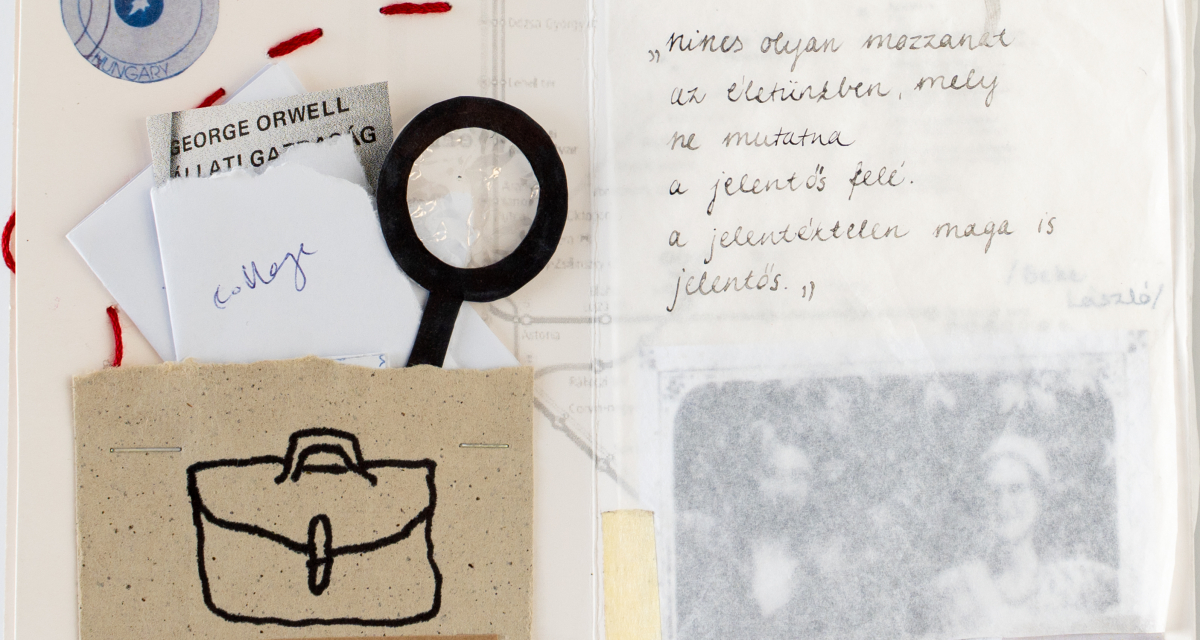 HUNGARY
GEORGE ORWELL
ÁLLATI GAZDASÁG
collage
Astoria
„nincs olyan mozzanat
az életünkben, mely
ne mutatna
a jelentős felé.
a jelentéktelen maga is
jelentős.„
/Beke
László/